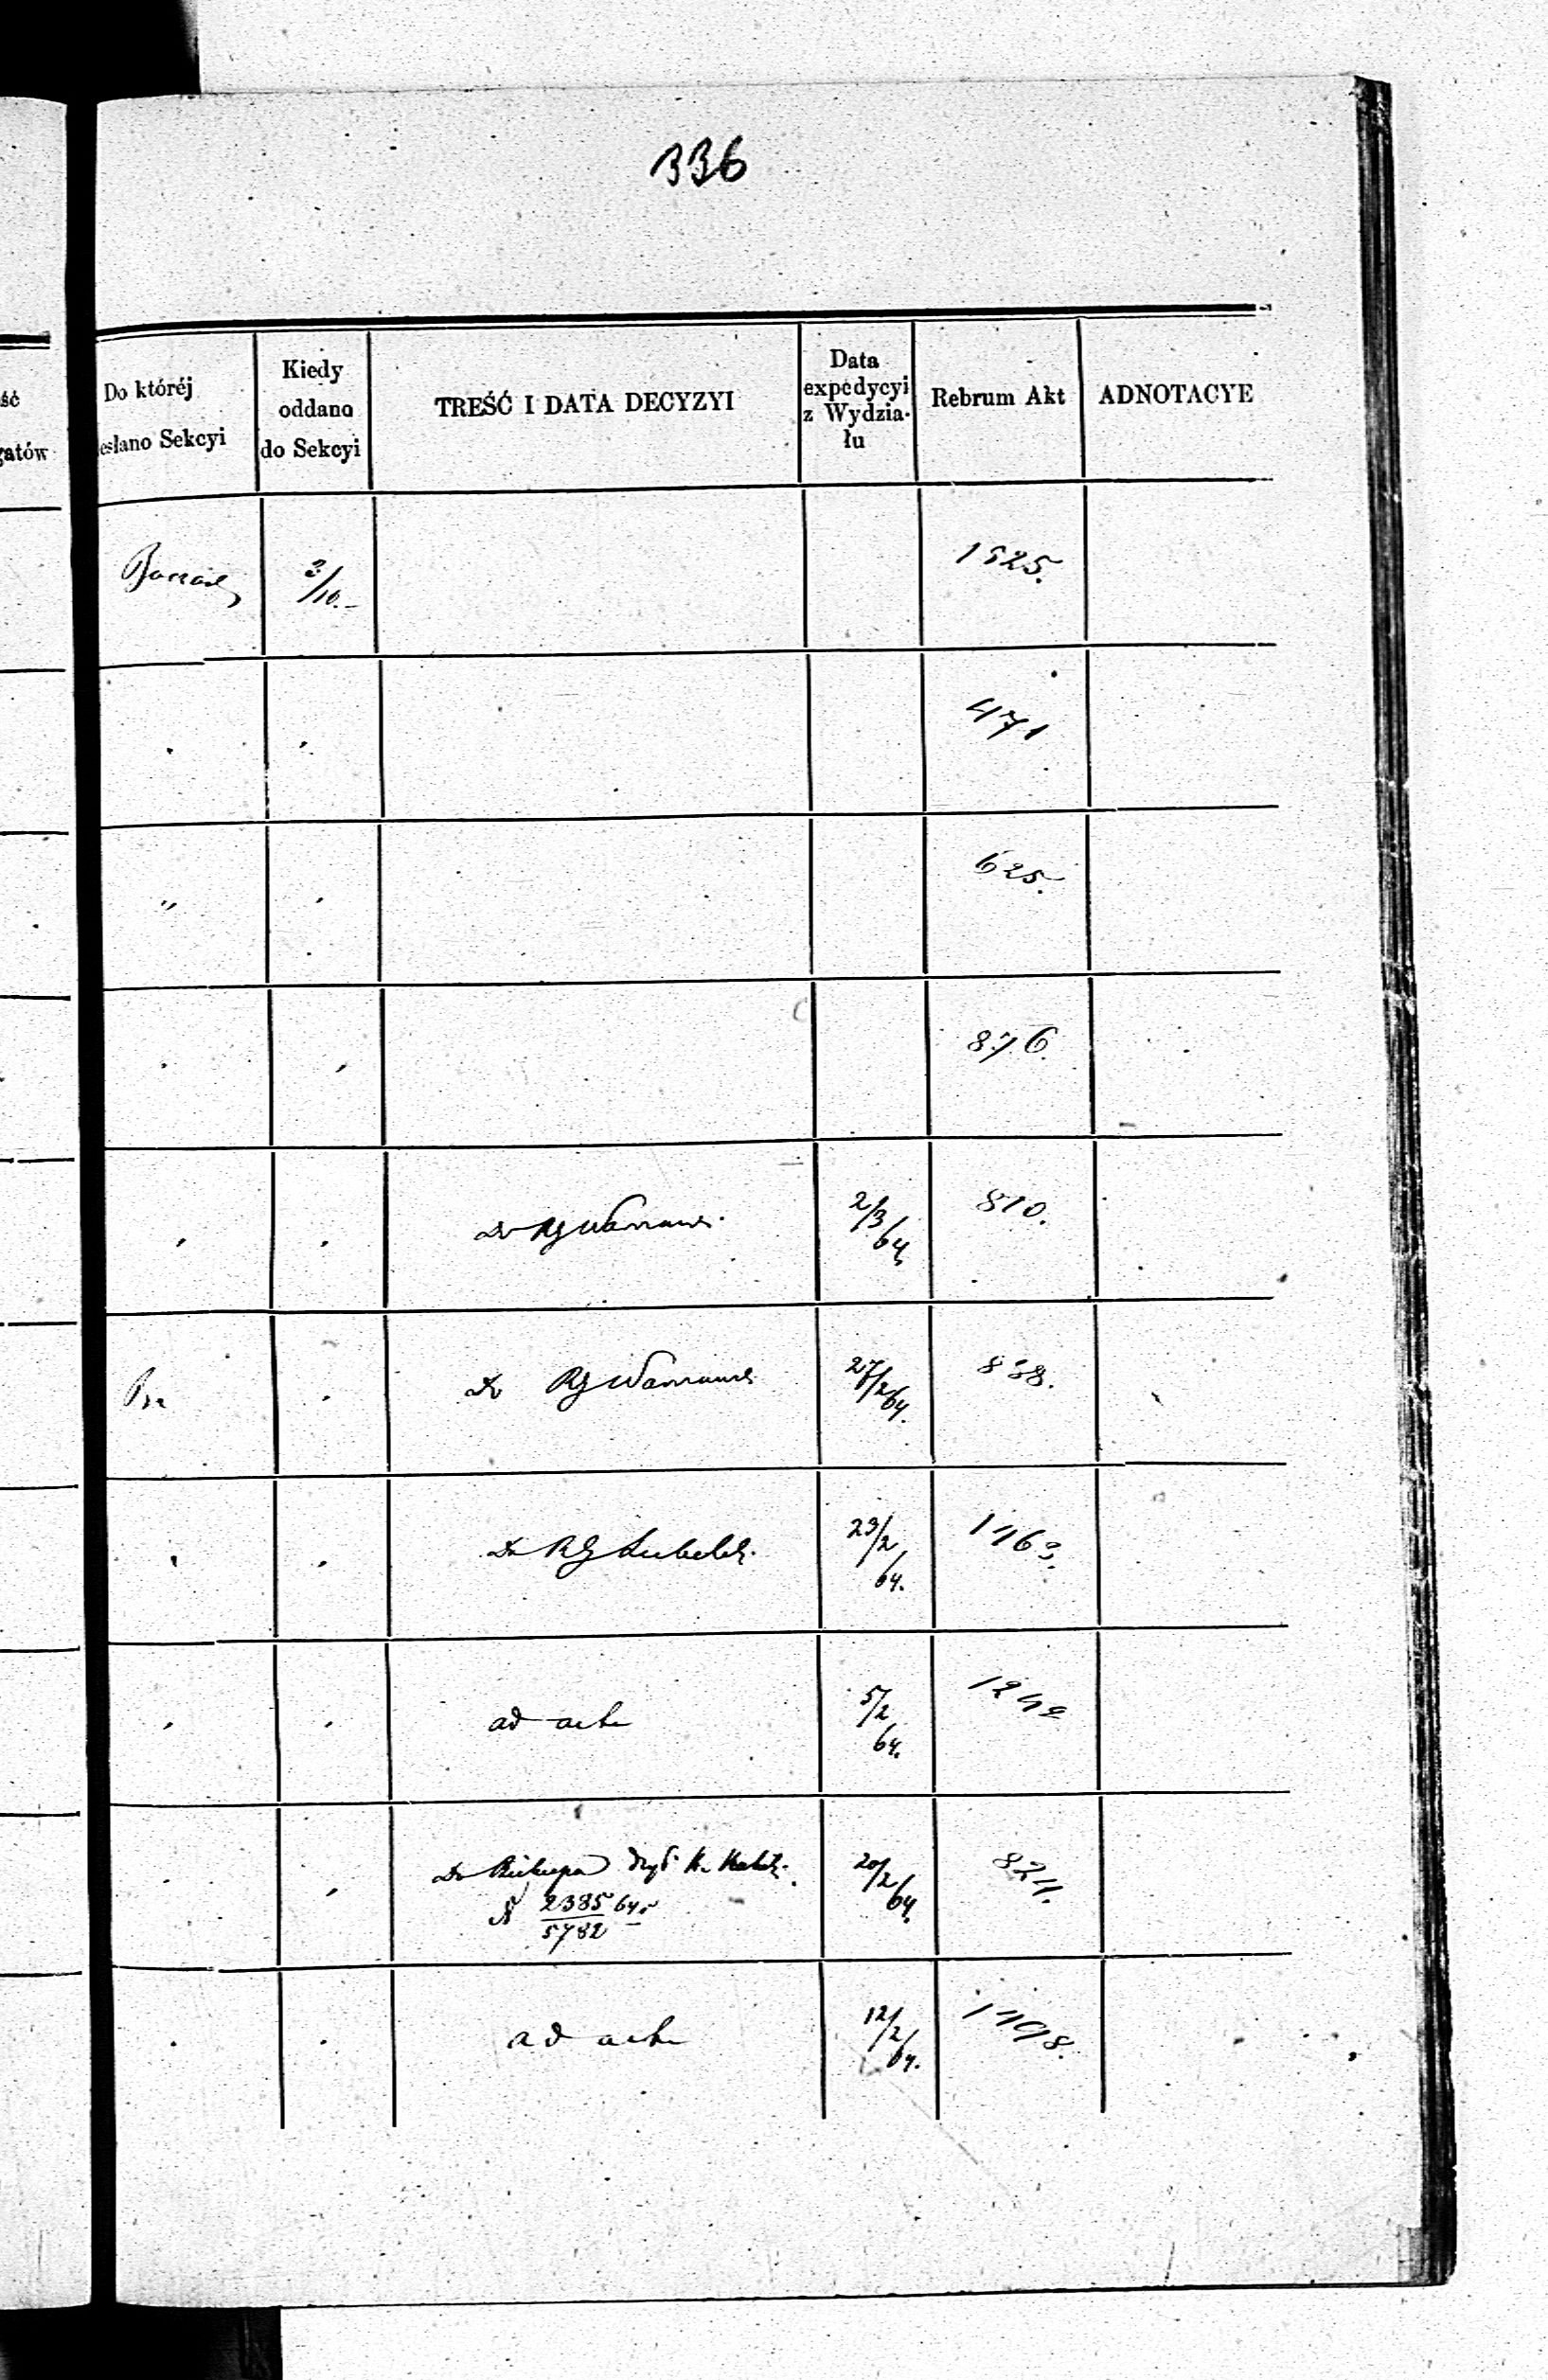 336
ść
gatów
Do któréj
esłano Sekcyi
Kiedy
oddano
do Sekcyi
TREŚĆ I DATA DECYZYI
Data
expedycyi
z Wydzia-
łu
Rebrum Akt
ADNOTACYE
2/10.
1525.
471
"
625.
876.
2/3/64
810.
Do RG
27/2/64.
838.
Do RG Lubelsk.
23/2/64.
1163.
ad acta
5/2/64.
1242
Do Biskupa
N 2385/5782 64.
20/2/64.
824.
ad acta
12/2/64.
1198.